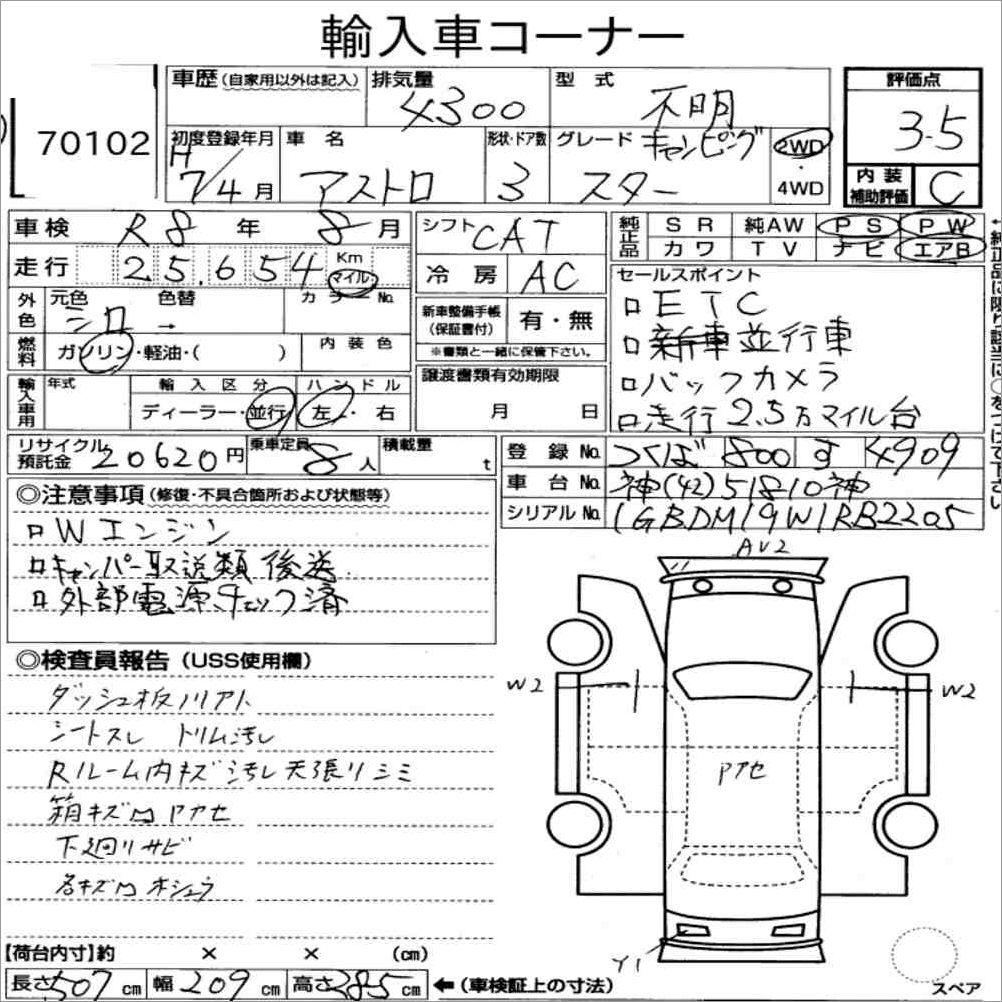 輸入車コーナー
70102
車歴(自家用以外は記入) 排気量 4300 型式 不明
評価点 3.5
初度登録年月 H7/4月 車名 アストロ 形状・ドア数 3 グレード キャンピングスター 2WD・4WD
内装補助評価 C
車検 R8年8月 シフト CAT 純正品 SR 純AW PS PW
カワ TV ナビ エアB
走行 25,654 Km マイル 冷房 AC
セールスポイント
ETC
新車並行車
バックカメラ
走行2.5万マイル台
外色 元色 シロ → 色替 カラーNo.
新車整備手帳(保証書付) 有・無
※書類と一緒に保管下さい。
燃料 ガソリン・軽油・( ) 内装色
輸入車用 年式 輸入区分 ディーラー・並行 ハンドル 左・右
譲渡書類有効期限 月 日
リサイクル預託金 20620円 乗車定員 8人 積載量 t
登録No. つくば 800 す 4909
車台No. 神(42)51810神
シリアルNo. 1GBDM19W1RB2205
◎注意事項(修復・不具合箇所および状態等)
Wエンジン
キャンパー取説類後送
外部電源チェック済
◎検査員報告(USS使用欄)
ダッシュ板ノリアト
シートスレ トリム汚レ
Rルーム内キズ汚レ天張リシミ
箱キズ凹Pアセ
下廻リサビ
各キズ凹ホシュウ
AU2
W2
W2
Pアセ
Y1
スペア
【荷台内寸】約 × × (cm)
長さ507cm 幅209cm 高さ285cm ←(車検証上の寸法)